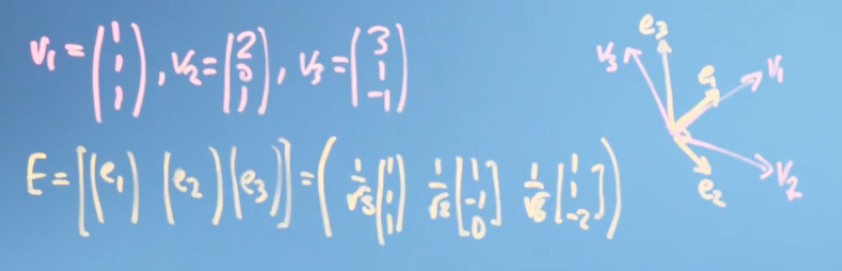 v₁ = (1 1 1), v₂ = (2 0 1), v₃ = (3 1 -1)
E = [(e₁) (e₂) (e₃)] = ( 1/√3 (1 1 1) 1/√2 [1 -1 0] 1/√6 [1 1 -2] )
e₃
v₃
e₁
v₁
v₂
e₂